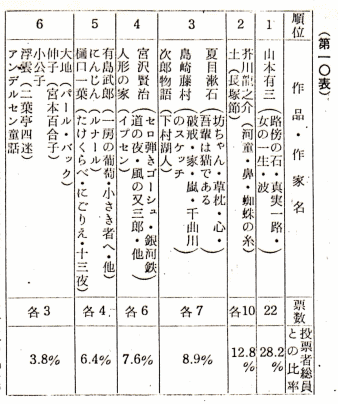 (第一〇表)
順位
作品・作家名
票数
投票者総員との比率
1
山本有三(路傍の石・真実一路・
女の一生・波
22
28.2%
2
芥川龍之介(河童・鼻・蜘蛛の糸
土(長塚節)
各10
12.8%
3
夏目漱石(坊ちゃん・草枕・心・
吾輩は猫である
島崎藤村(破戒・家・嵐・千曲川
のスケッチ
次郎物語(下村湖人)
各7
8.9%
4
宮沢賢治(セロ弾きゴーシュ・銀河鉄
道の夜・風の又三郎・他
人形の家(イプセン)
各6
7.6%
5
有島武郎(一房の葡萄・小さき者へ・他)
にんじん(ルナール)
樋口一葉(たけくらべ・にごりえ・十三夜)
各4
6.4%
6
大地(パール・バック)
伸子(宮本百合子)
小公子
浮雲(二葉亭四迷)
アンデルセン童話
各3
3.8%